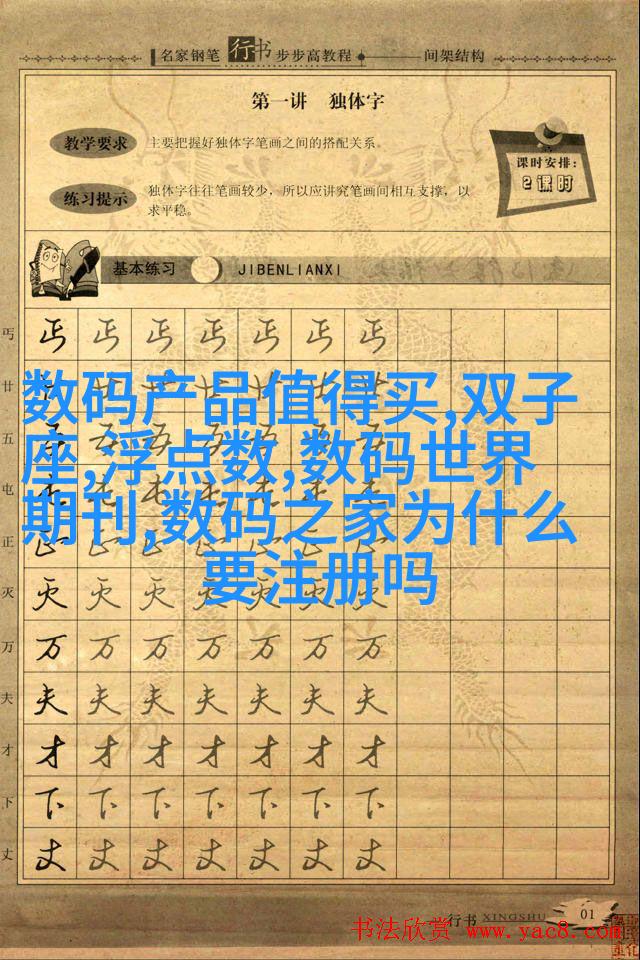 名家钢笔 行书 步步高教程 间架结构
第一讲 独体字
教学要求
主要把握好独体字笔画之间的搭配关系。
课时安排:
2课时
练习提示
独体字往往笔画较少，所以应讲究笔画间相互支撑，以
求平稳。
基本练习 JIBENLIANXI
丐 丐 丐 丐 丐 丐 丐 丐
数码产品值得买,双子
座,浮点数,数码世界
期刊,数码之家为什么
要注册吗
廿
五
屯
正
灭 灭 灭 灭 灭 灭 灭 灭
万 万 万 万 万 万 万 万
夫 夫 夫 夫 夫 夫 夫 夫
才 才 才 才 才 才 才 才
下 下 下 下 下 下 下 下
丈 丈 丈 丈 丈 丈 丈 丈
行书 XINGSHU 01
书法欣赏 www.yac8.com